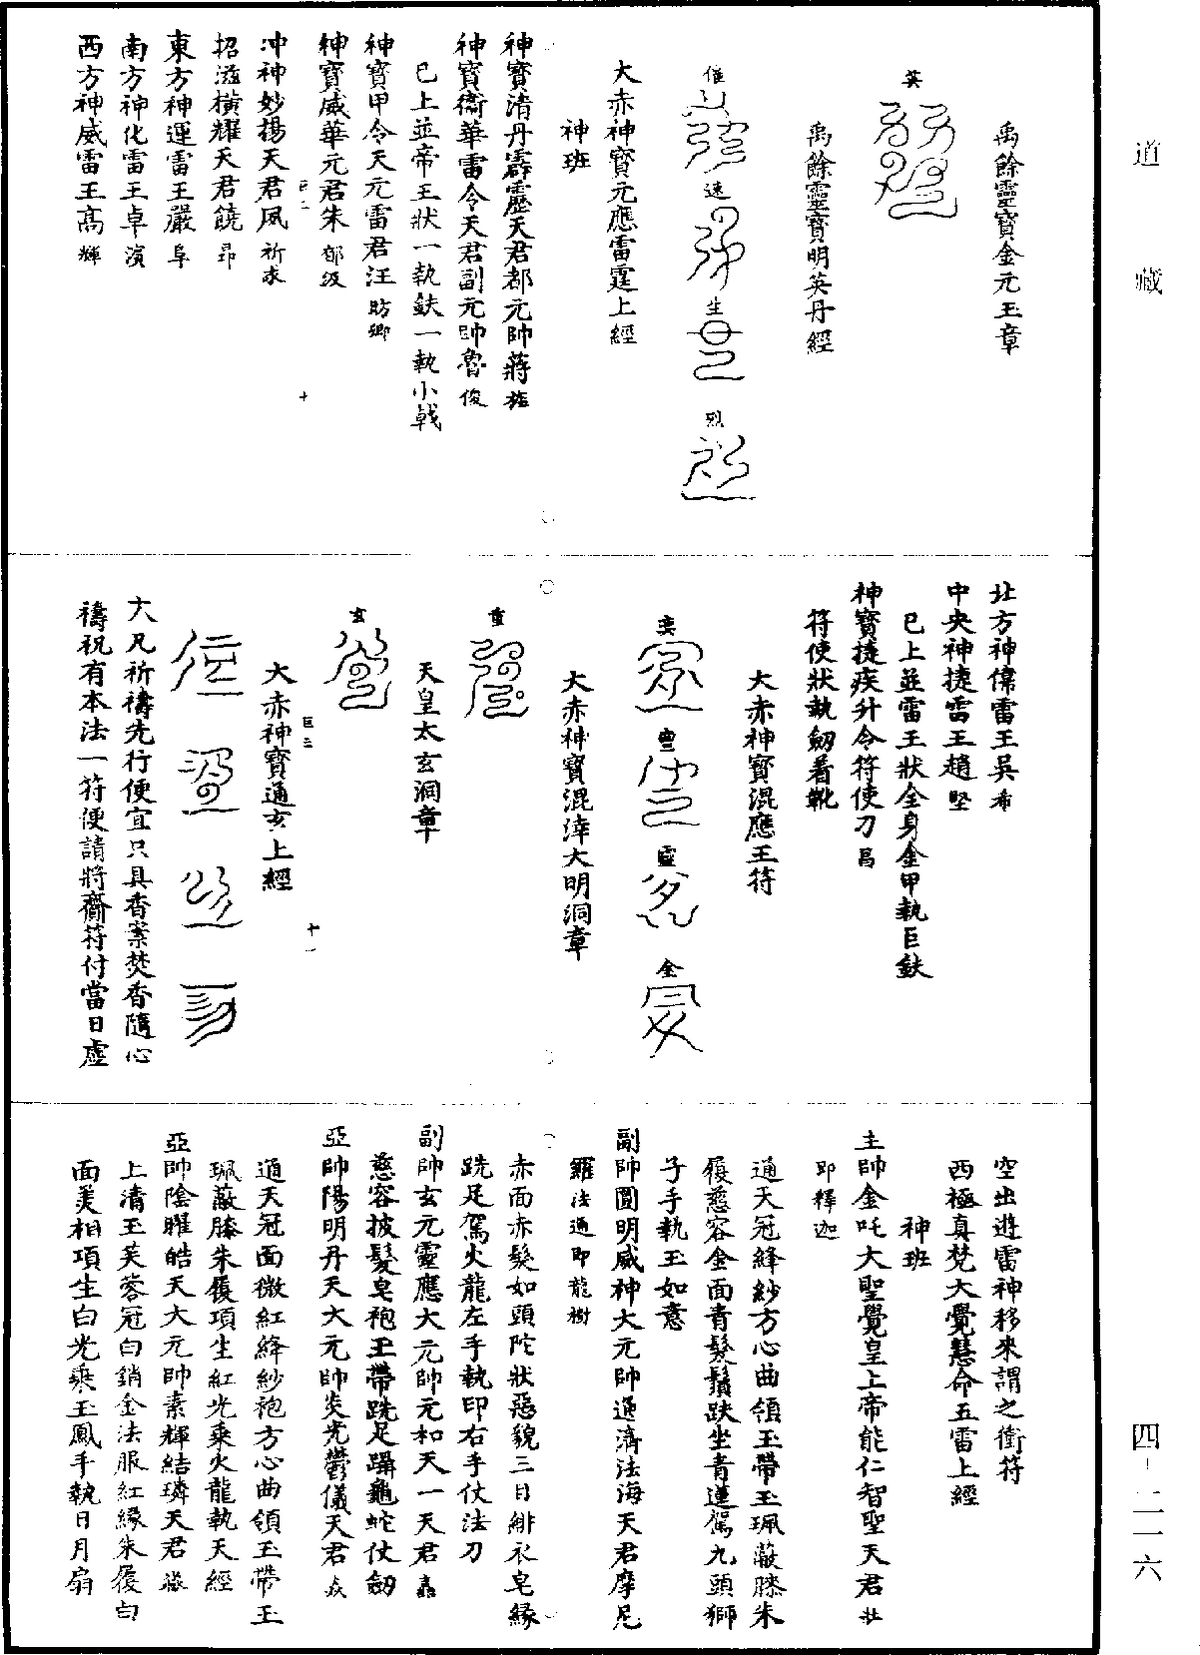 道藏
禹餘靈寶金元玉章
英
禹餘靈寶明英丹經
催
速
生
烈
大赤神寶元應雷霆上經
神班
神寶清丹霹靂天君都元帥蔣
神寶衞華雷令天君副元帥魯俊
已上並帝王狀一執鈇一執小戟
神寶甲令天元雷君汪昉卿
神寶威華元君朱郁汲
冲神妙揚天君風祈求
招滋橫耀天君饒昂
東方神運雷王嚴阜
南方神化雷王卓濱
西方神威雷王高輝
十
北方神偉雷王吳希
中央神捷雷王趙堅
已上並雷王狀全身金甲執巨鈇
神寶捷疾升令符使刀昌
符使狀執劒着靴
大赤神寶混應王符
靈
金
大赤神寶混滓大明洞章
重
天皇太玄洞章
玄
大赤神寶通玄上經
巨三
十一
大凡祈禱先行便宜只具香案焚香隨心
禱祝有本法一符便請將齎符付當日虛
空出遊雷神移來謂之衝符
西極真梵大覺慧命五雷上經
神班
主帥金吒大聖覺皇上帝能仁智聖天君
即釋迦
通天冠絳紗方心曲領玉帶玉珮蔽膝朱
履慈容金面青髮鬚趺坐青蓮駕九頭獅
子手執玉如意
副帥圓明威神大元帥通濟法海天君摩尼
羅法通即龍樹
赤面赤髮如頭陀狀惡貌三目緋衣皂緣
跣足駕火龍左手執印右手仗法刀
副帥玄元靈應大元帥元和天一天君
慈容披髮皂袍玉帶跣足躡龜蛇仗劒
亞帥陽明丹天大元帥炎光鬱儀天君
通天冠面微紅絳紗袍方心曲領玉帶玉
珮蔽膝朱履項生紅光乘火龍執天經
亞帥陰曜皓天大元帥素輝結璘天君
上清玉芙蓉冠白銷金法服紅緣朱履白
面美相項生白光乘玉鳳手執日月扇
四—二一六